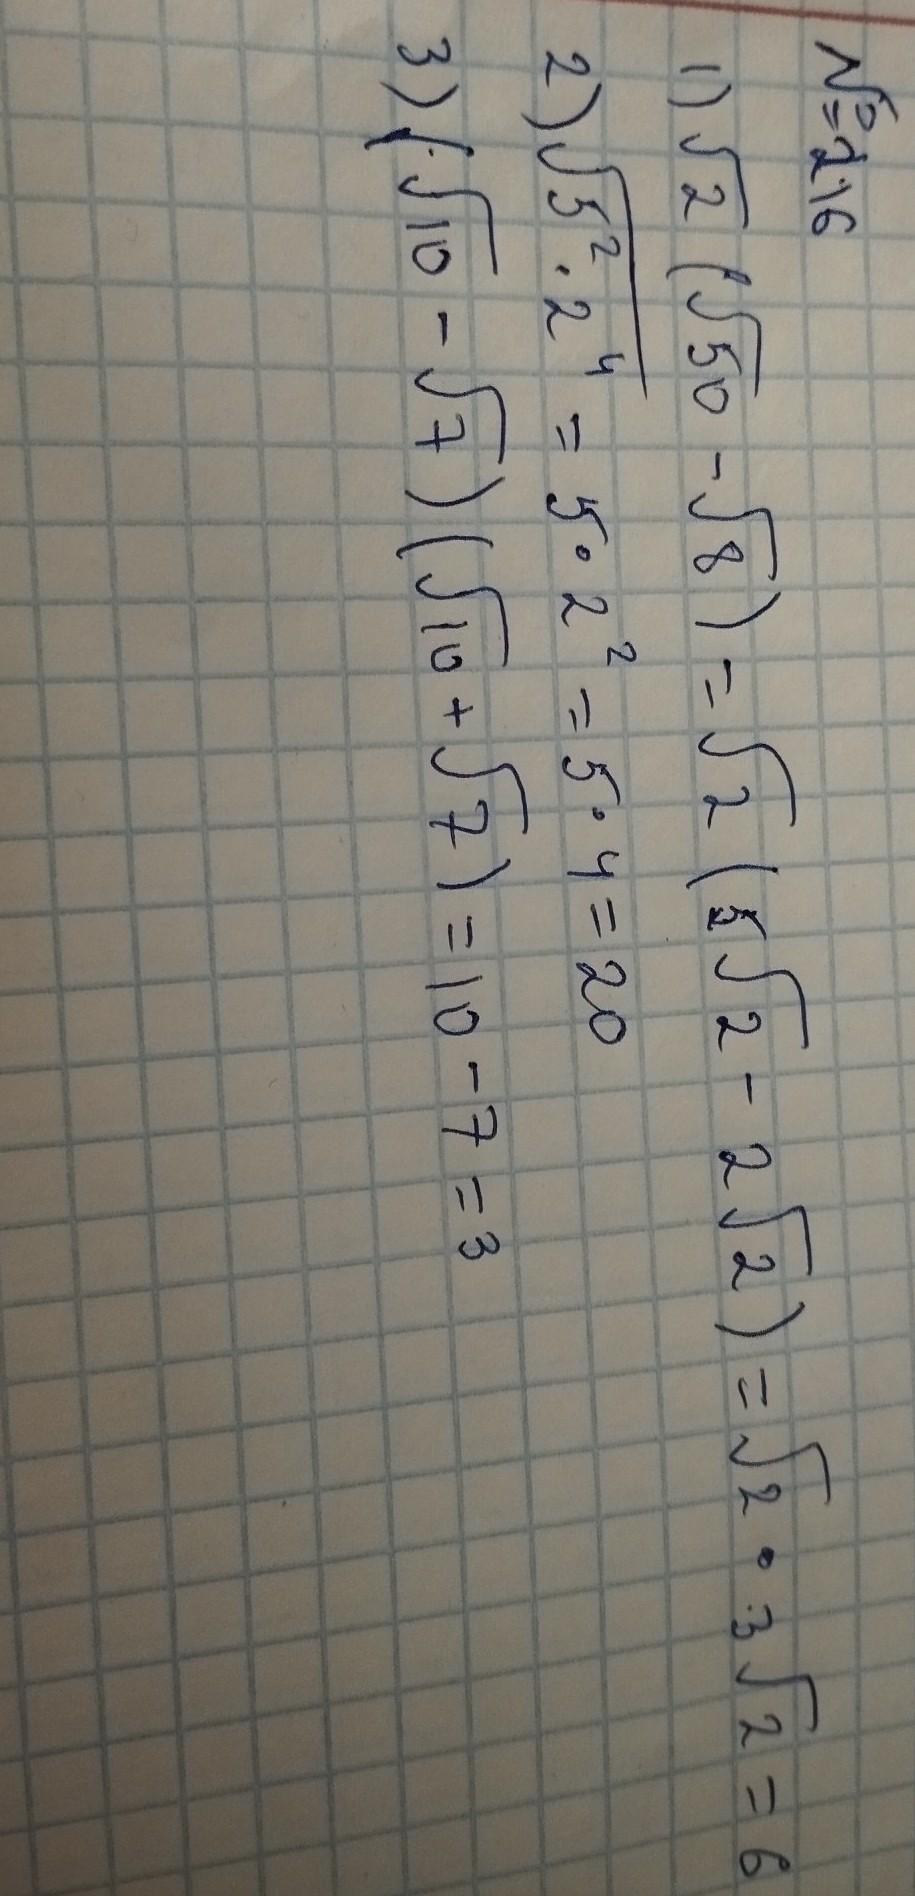 № 216
1) √2 (√50 - √8) = √2 (5√2 - 2√2) = √2 · 3√2 = 6
2) √5² · 2⁴ = 5 · 2² = 5 · 4 = 20
3) (√10 - √7) (√10 + √7) = 10 - 7 = 3